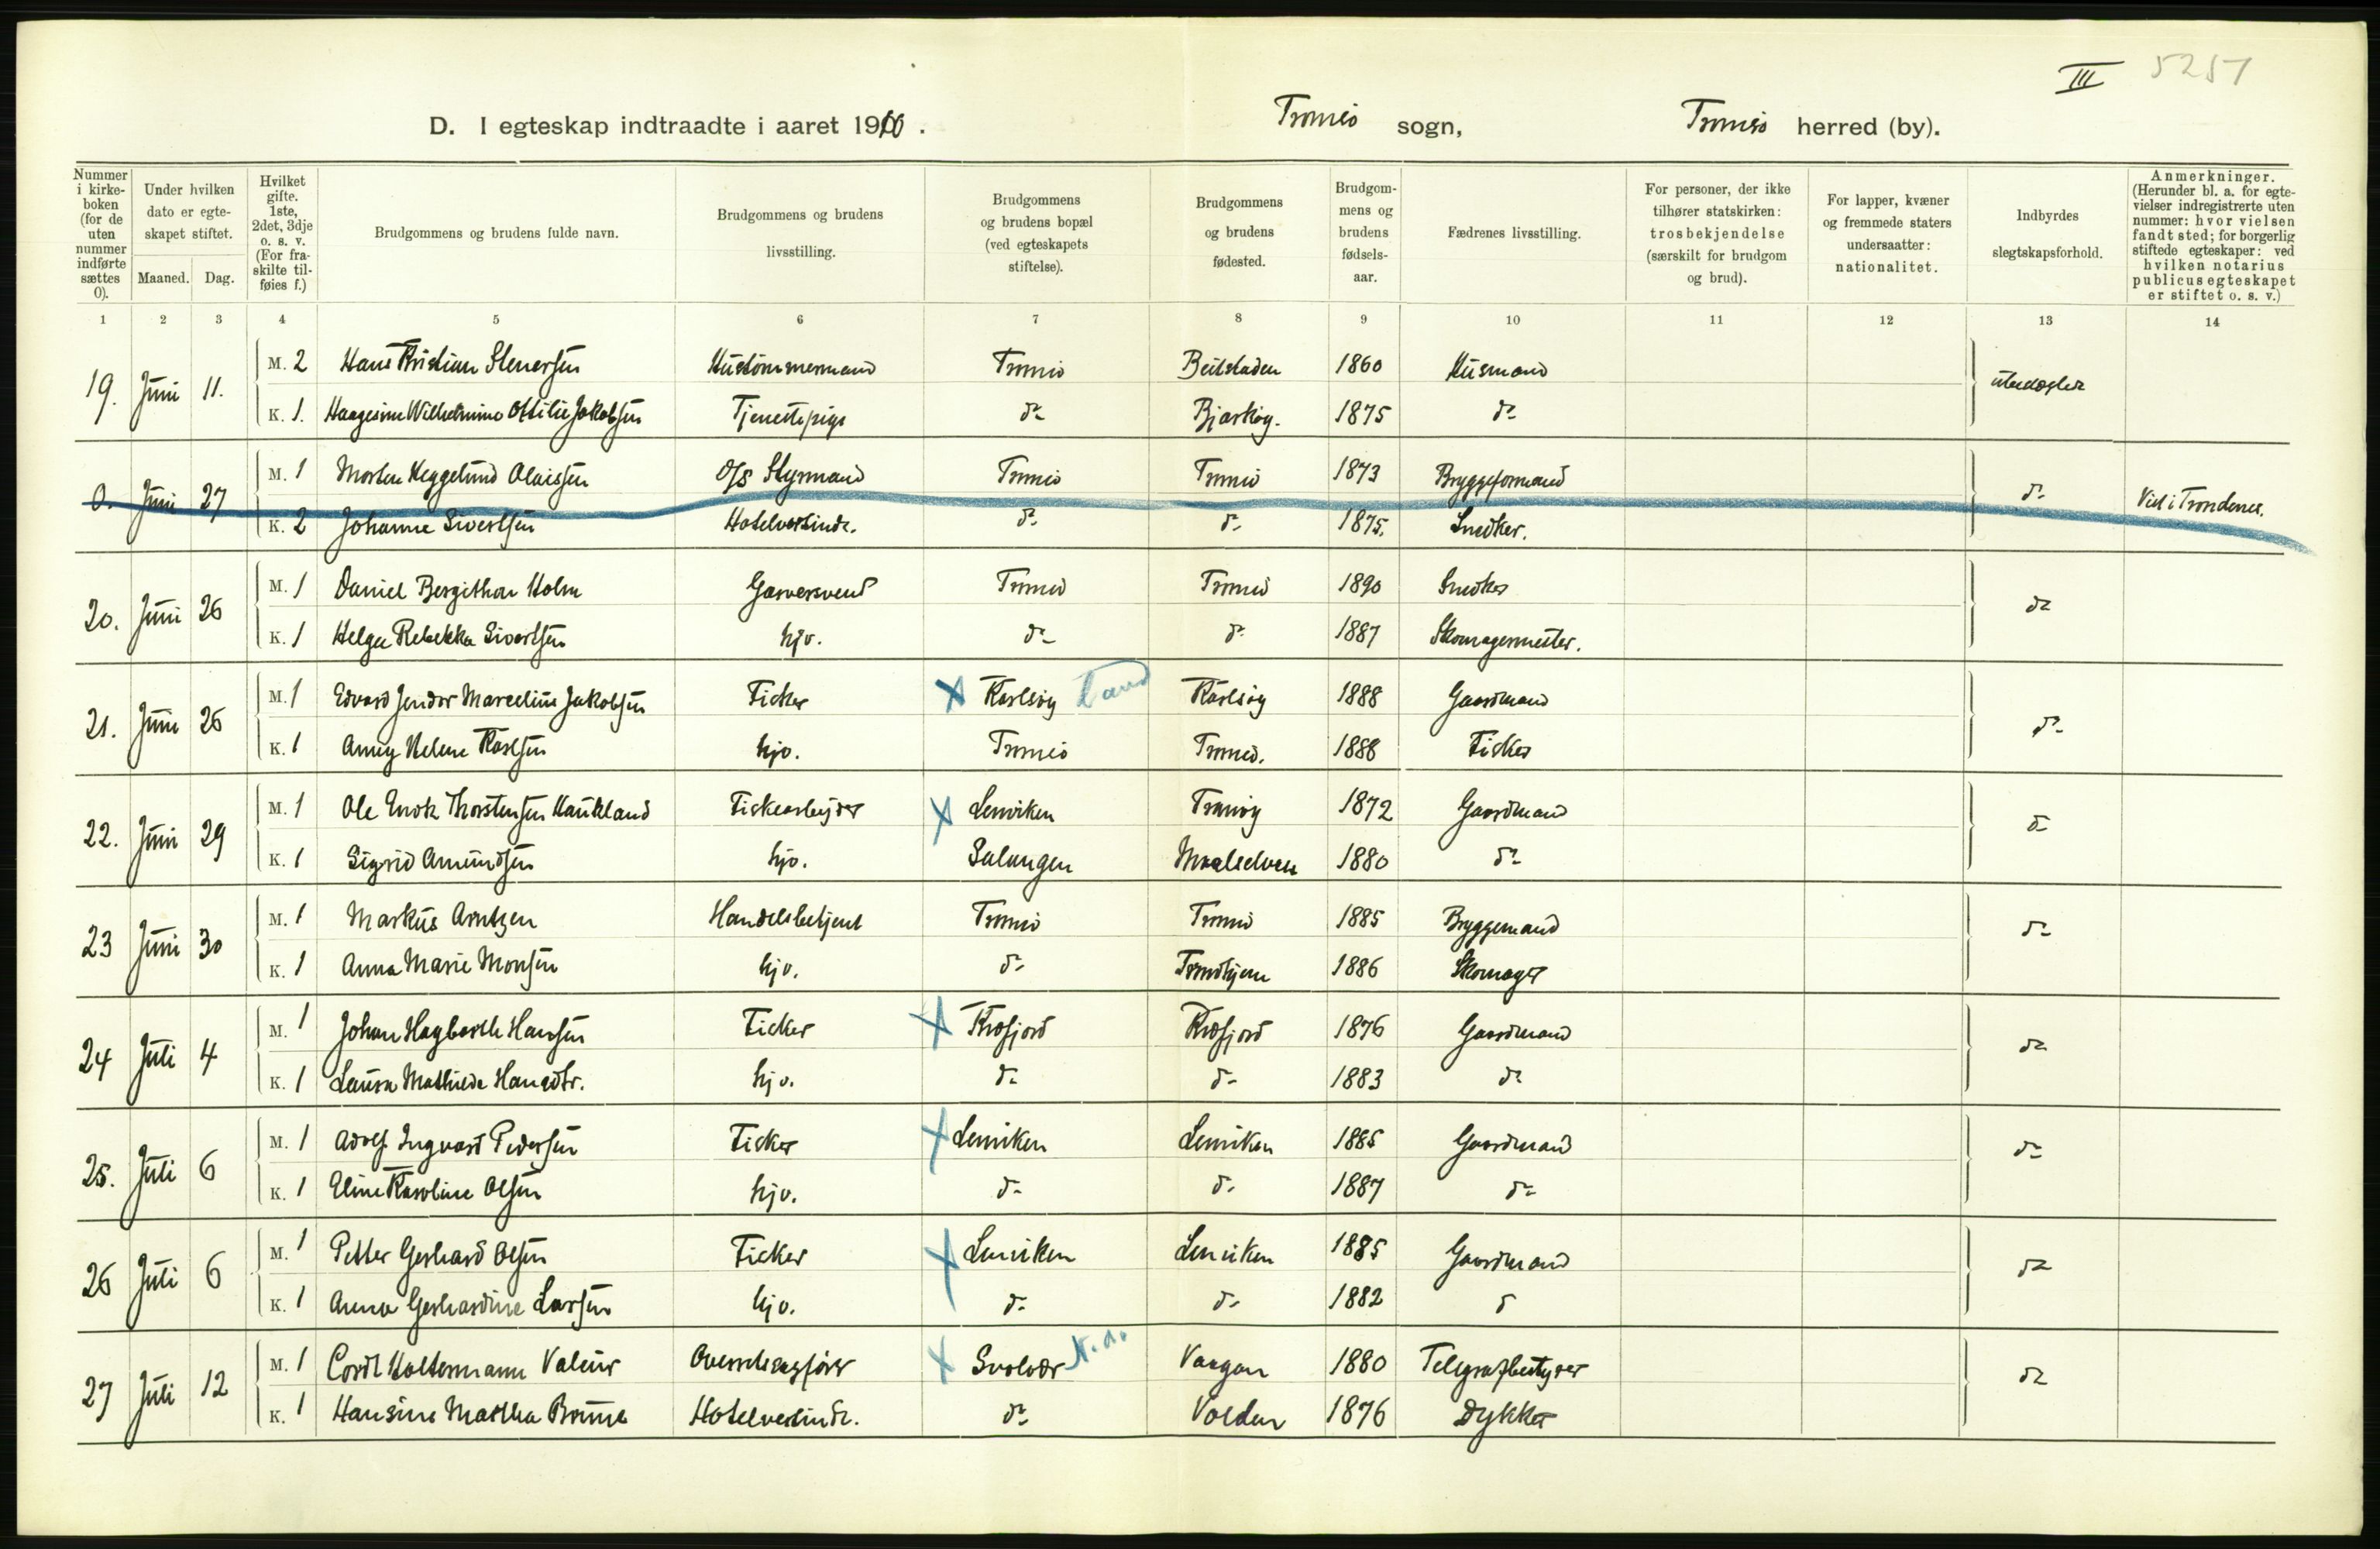 III 5251
D. I egteskap indtraadte i aaret 1910. Tromsø sogn, Tromsø herred (by).
Nummer i kirkeboken (for de uten nummer indførte sættes 0).
Under hvilken dato er egteskapet stiftet.
Maaned. Dag.
Hvilket gifte. 1ste, 2det, 3dje o. s. v. (For fraskilte tilføies f.)
Brudgommens og brudens fulde navn.
Brudgommens og brudens livsstilling.
Brudgommens og brudens bopæl (ved egteskapets stiftelse).
Brudgommens og brudens fødested.
Brudgommens og brudens fødselsaar.
Fædrenes livsstilling.
For personer, der ikke tilhører statskirken: trosbekjendelse (særskilt for brudgom og brud).
For lapper, kvæner og fremmede staters undersaatter: nationalitet.
Indbyrdes slegtskapsforhold.
Anmerkninger. (Herunder bl. a. for egtevielser indregistrerte uten nummer: hvor vielsen fandt sted; for borgerlig stiftede egteskaper: ved hvilken notarius publicus egteskapet er stiftet o. s. v.)
1 2 3 4 5 6 7 8 9 10 11 12 13 14
19. Juni 11. M. 2 Hans Kristian Stenersen Hustømmermand Tromsø Beitstaden 1860 Husmand ubeslægtet
K. 1. Haagesine Wilhelmine Ottilie Jakobsen Tjenestepige do Bjarkøy. 1875 do
0. Juni 27 M. 1 Morten Heggelund Olaissen D/S Styrmand Tromsø Tromsø 1873 Bryggeformand do Viet i Trondenes.
K. 2 Johanne Sivertsen Hotelvertinde. do do 1875. Snedker.
20. Juni 26 M. 1 Daniel Bergithon Holm Garversvend Tromsø Tromsø 1890 Snedker do
K. 1 Helga Rebekka Sivertsen hjv. do do 1887 Skomagermester.
21. Juni 26 M. 1 Edvard Jendor Marcelius Jakobsen Fisker X Karlsøy Land Karlsøy 1888 Gaardmand do
K. 1 Anny Helene Karlsen hjv. Tromsø Tromsø. 1888 Fisker
22. Juni 29 M. 1 Ole Enok Thorstensen Haukland Fiskearbejder X Lenviken Tranøy 1872 Gaardmand do
K. 1 Sigrid Amundsen hjv. Salangen Maalselven 1880 do
23 Juni 30 M. 1 Markus Arntzen Handelsbetjent Tromsø Tromsø 1885 Bryggemand do
K. 1 Anna Marie Monsen hjv. do Trondhjem 1886 Skomager
24 Juli 4 M. 1 Johan Hagbarth Hansen Fisker X Kvæfjord Kvæfjord 1876 Gaardmand do
K. 1 Laura Mathilde Hansdtr. hjv. do do 1883 do
25. Juli 6 M. 1 Adolf Ingvard Pedersen Fisker X Lenviken Lenviken 1885 Gaardmand do
K. 1 Eline Karoline Olsen hjv. do do 1887 do
26 Juli 6 M. 1 Petter Gerhard Olsen Fisker X Lenviken Lenviken 1885 Gaardmand do
K. 1 Anna Gerhardine Larsen hjv. do do 1882 do
27 Juli 12 M. 1 Cordt Holtermann Valeur Overretssagfører X Svolvær N. a. Vaagan 1880 Telegrafbestyrer do
K. 1 Hansine Martha Brune Hotelvertinde. do Volden 1876 Dykker